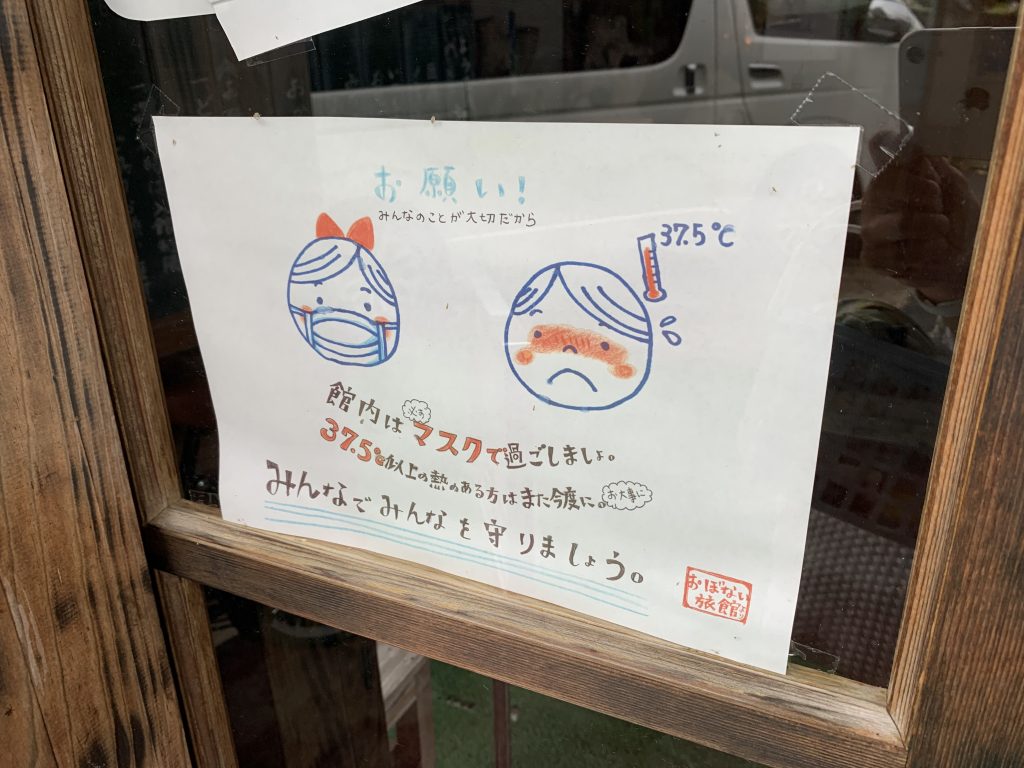 お願い!
みんなのことが大切だから
37.5℃
館内は必ずマスクで過ごしましょ。
37.5℃以上の熱のある方はまた今度に。お大事に
みんなでみんなを守りましょう。
おぼない
旅館より